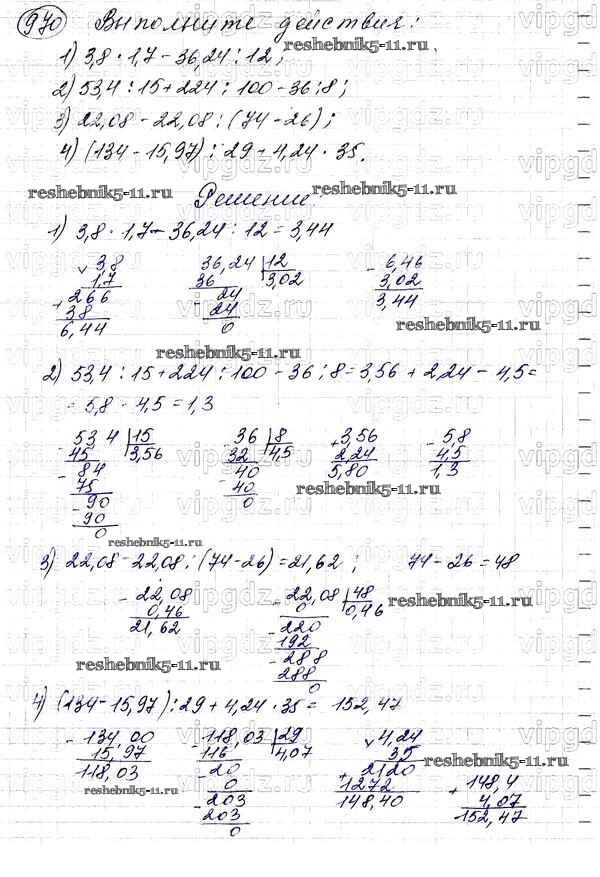 970 Выполните действия:
1) 3,8 · 1,7 - 36,24 : 12;
2) 53,4 : 15 + 224 : 100 - 36 : 8;
3) 22,08 - 22,08 : (74 - 26);
4) (134 - 15,97) : 29 + 4,24 · 35.
Решение:
1) 3,8 · 1,7 - 36,24 : 12 = 3,44
3,8 36,24 12 6,46
1,7 36 3,02 3,02
266 24 3,44
38 24
6,44 0
2) 53,4 : 15 + 224 : 100 - 36 : 8 = 3,56 + 2,24 - 4,5 =
= 5,8 - 4,5 = 1,3
53 4 15 36 8 3,56 5,8
45 3,56 32 4,5 2,24 4,5
84 40 5,80 1,3
75 40
90 0
90
0
3) 22,08 - 22,08 : (74 - 26) = 21,62 ; 74 - 26 = 48
22,08 22,08 48
0,46 0 0,46
21,62 220
192
288
288
0
4) (134 - 15,97) : 29 + 4,24 · 35 = 152,47
134,00 118,03 29 4,24
15,97 116 4,07 35
118,03 20 2120 148,4
0 1272 4,07
203 148,40 152,47
203
0
reshebnik5-11.ru
reshebnik5-11.ru
reshebnik5-11.ru
reshebnik5-11.ru
reshebnik5-11.ru
reshebnik5-11.ru
reshebnik5-11.ru
reshebnik5-11.ru
reshebnik5-11.ru
reshebnik5-11.ru
reshebnik5-11.ru